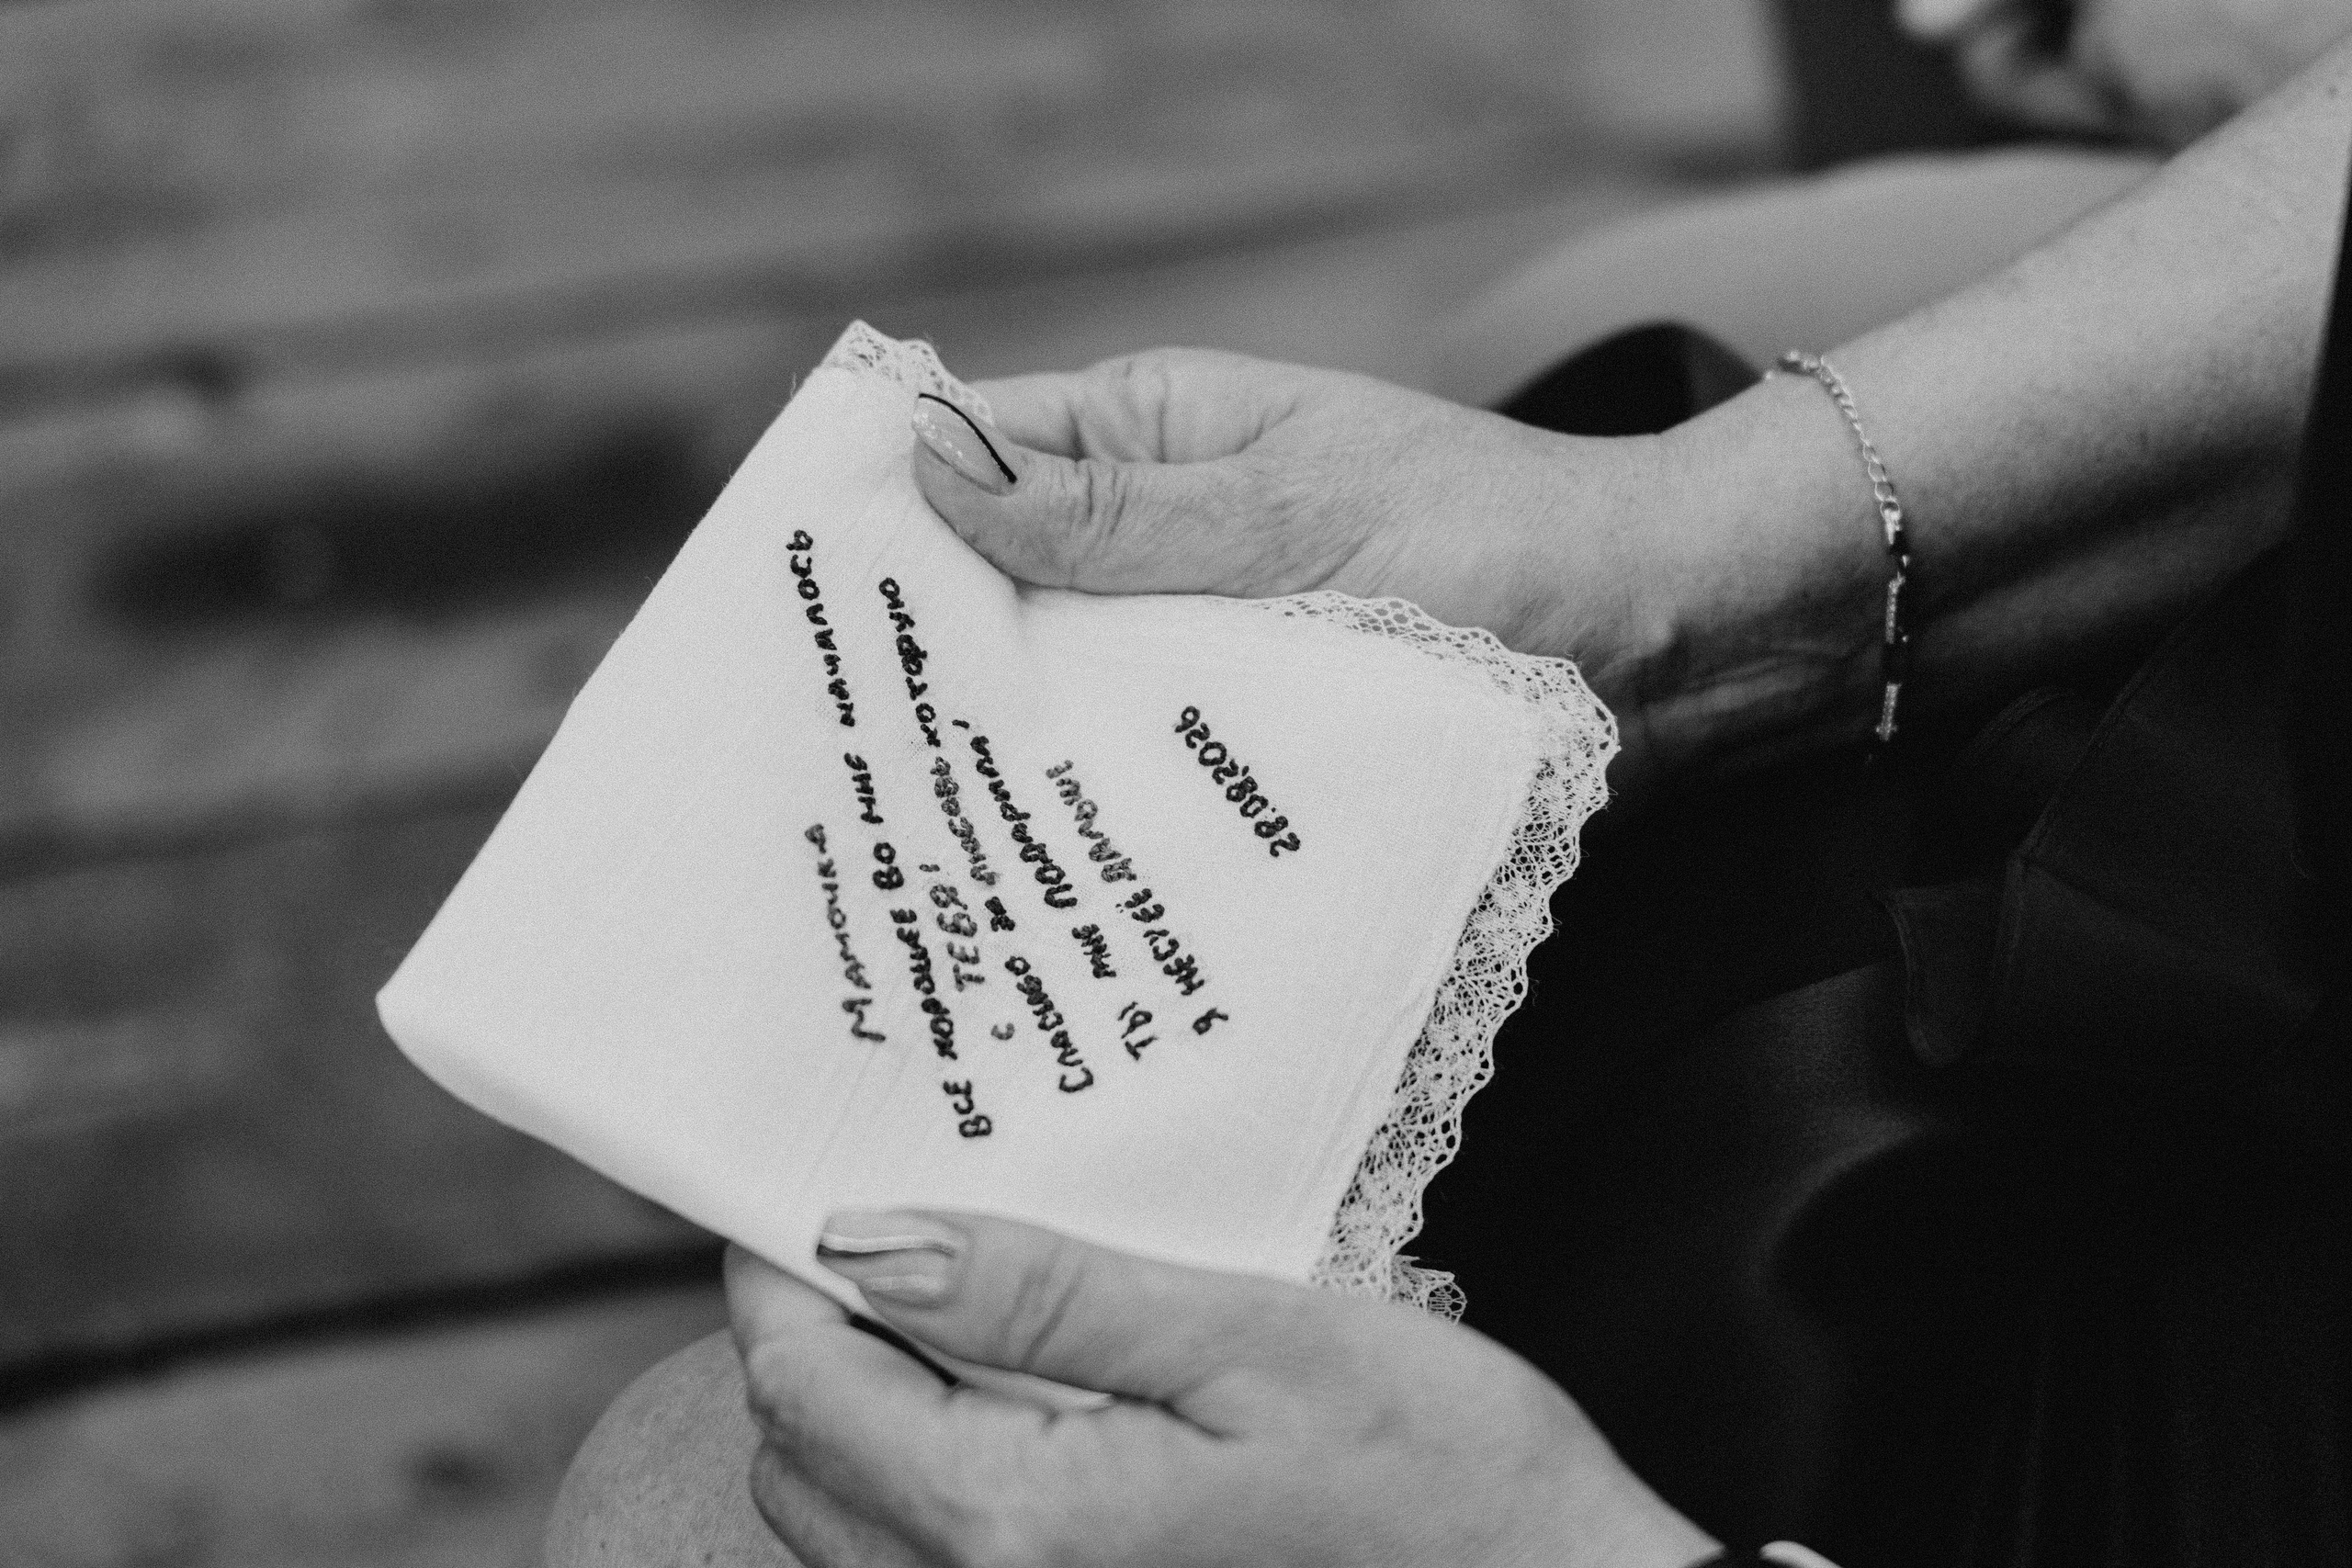 Мамочка
Все хорошее во мне начиналось
с тебя!
Спасибо за любовь которую
ты мне подарила,
я несу её дальше
28.08.2026